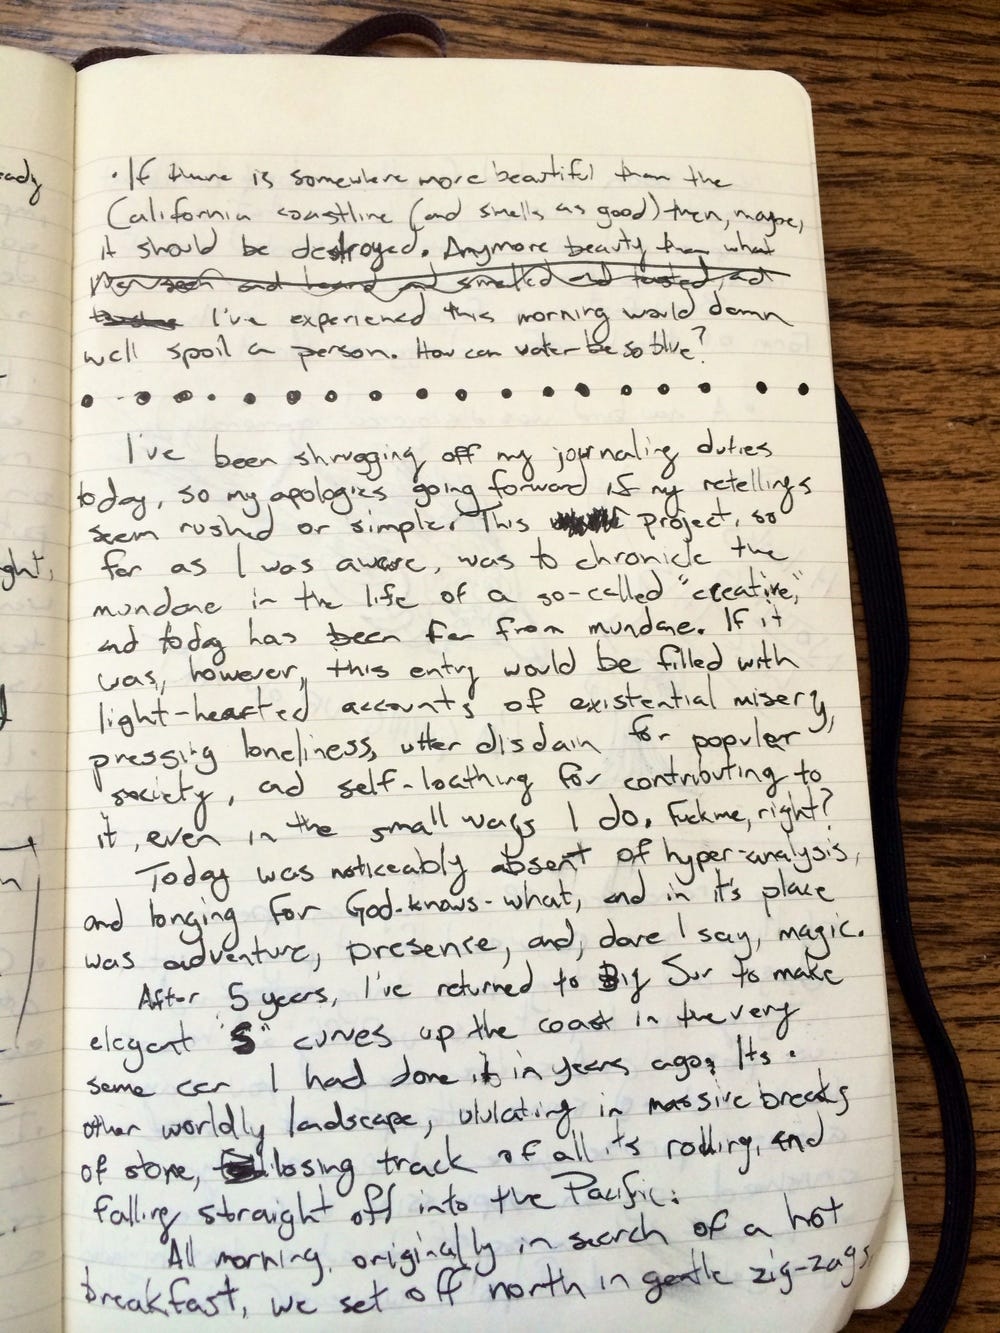 eady
ght,
· If there is somewhere more beautiful than the
California coastline (and smells as good) then, maybe,
it should be destroyed. Anymore beauty than what
I've seen and heard and smelled and tasted, and
I've experienced this morning would damn
well spoil a person. How can water be so blue?
I've been shrugging off my journaling duties
today, so my apologies going forward if my retellings
seem rushed or simple. This project, so
far as I was aware, was to chronicle the
mundane in the life of a so-called "creative,"
and today has been far from mundane. If it
was, however, this entry would be filled with
light-hearted accounts of existential misery,
pressing loneliness, utter disdain for popular
society, and self-loathing for contributing to
it, even in the small ways I do. Fuck me, right?
Today was noticeably absent of hyper-analysis,
and longing for God-knows-what, and in it's place
was adventure, presence, and, dare I say, magic.
After 5 years, I've returned to Big Sur to make
elegant "S" curves up the coast in the very
same car I had done it in years ago. Its
other worldly landscape, ululating in massive breaks
of stone, losing track of all its rolling, and
falling straight off into the Pacific.
All morning, originally in search of a hot
breakfast, we set off north in gentle zig-zags,